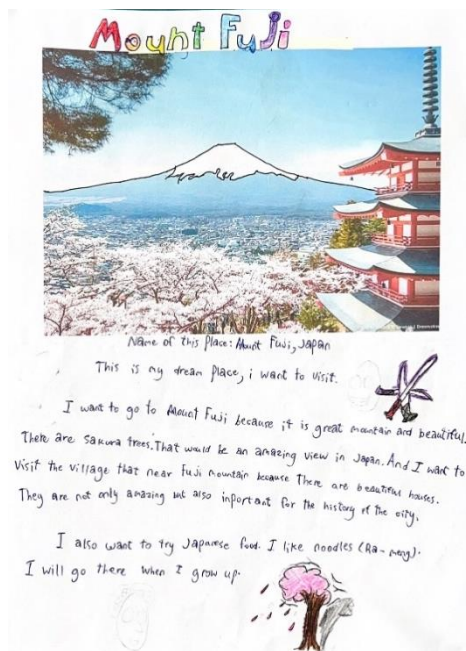 Mount FuJi
Name of this Place: Mount Fuji, Japan
This is my dream Place, i want to visit.
I want to go to Mount Fuji because it is great mountain and beautiful.
There are sakura trees. That would be an amazing view in Japan. And I want to
visit the village that near Fuji mountain because There are beautiful houses.
They are not only amazing but also inportant for the history of the city.
I also want to try Japanese food. I like noodles (Ra-meng).
I will go there when I grow up.